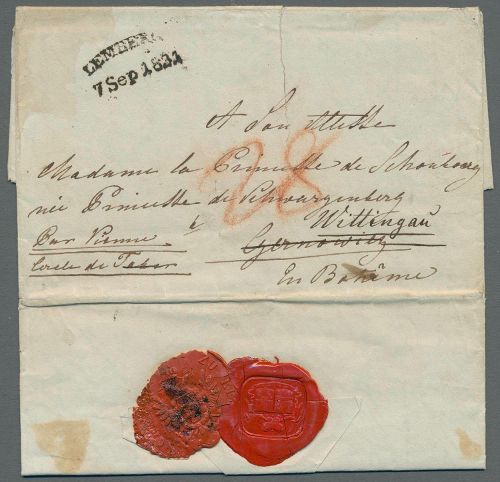 LEMBERG
7 Sep 1831
28
A Son Altesse
Madame la Princesse de Schönburg
née Princesse de Schwarzenberg
à Wittingau
Par Vienne
Cercle de Tabor
En Bohême